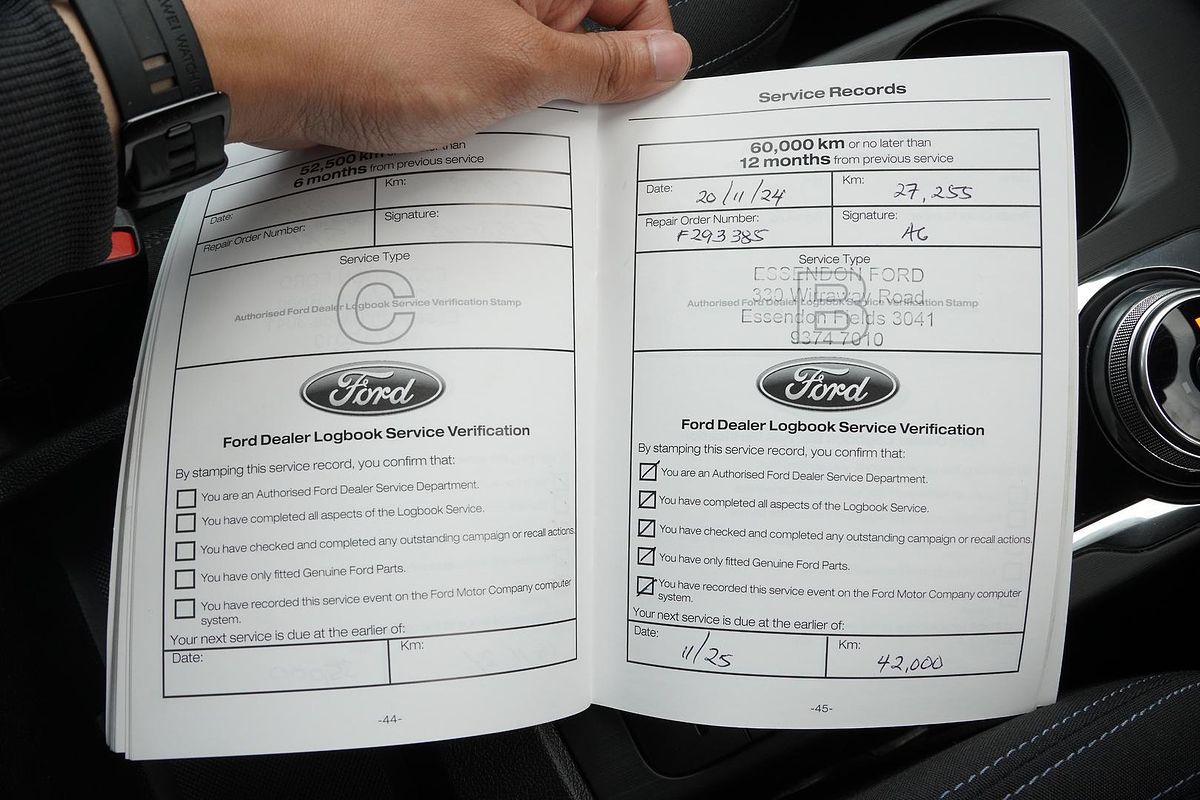 HUAWEI WATCH
52,500 km or no later than
6 months from previous service
Date:
Km:
Repair Order Number:
Signature:
Service Type
C
Authorised Ford Dealer Logbook Service Verification Stamp
Ford
Ford Dealer Logbook Service Verification
By stamping this service record, you confirm that:
You are an Authorised Ford Dealer Service Department.
You have completed all aspects of the Logbook Service.
You have checked and completed any outstanding campaign or recall actions.
You have only fitted Genuine Ford Parts.
You have recorded this service event on the Ford Motor Company computer
system.
Your next service is due at the earlier of:
Date:
Km:
-44-
Service Records
60,000 km or no later than
12 months from previous service
Date: 20/11/24
Km: 27,255
Repair Order Number:
F293385
Signature:
AG
Service Type
B
ESSENDON FORD
330 Wirraway Road
Authorised Ford Dealer Logbook Service Verification Stamp
Essendon Fields 3041
9374 7010
Ford
Ford Dealer Logbook Service Verification
By stamping this service record, you confirm that:
You are an Authorised Ford Dealer Service Department.
You have completed all aspects of the Logbook Service.
You have checked and completed any outstanding campaign or recall actions.
You have only fitted Genuine Ford Parts.
You have recorded this service event on the Ford Motor Company computer
system.
Your next service is due at the earlier of:
Date: 11/25
Km: 42,000
-45-